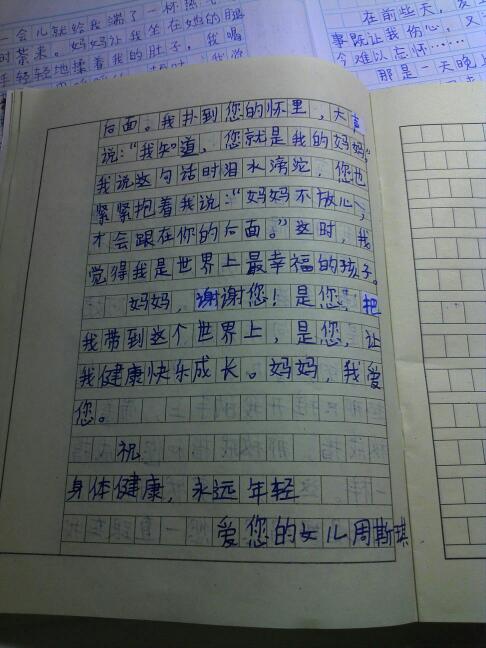 一会儿就给我端了一杯热
时茶来。妈妈让我坐在她的腿
手轻轻地揉着我的肚子，我喝
在前些天，发生
事既让我伤心，又
今难以忘怀……
那是一天晚上
后面。我扑到您的怀里，大声
说：“我知道，您就是我的妈妈。”
我说这句话时泪水滂沱，您也
紧紧抱着我说：“妈妈不放心，
才会跟在你的后面。”这时，我
觉得我是世界上最幸福的孩子。
妈妈，谢谢您！是您，把
我带到这个世界上，是您，让
我健康快乐成长。妈妈，我爱
您。
祝
身体健康，永远年轻
爱您的女儿周斯琪